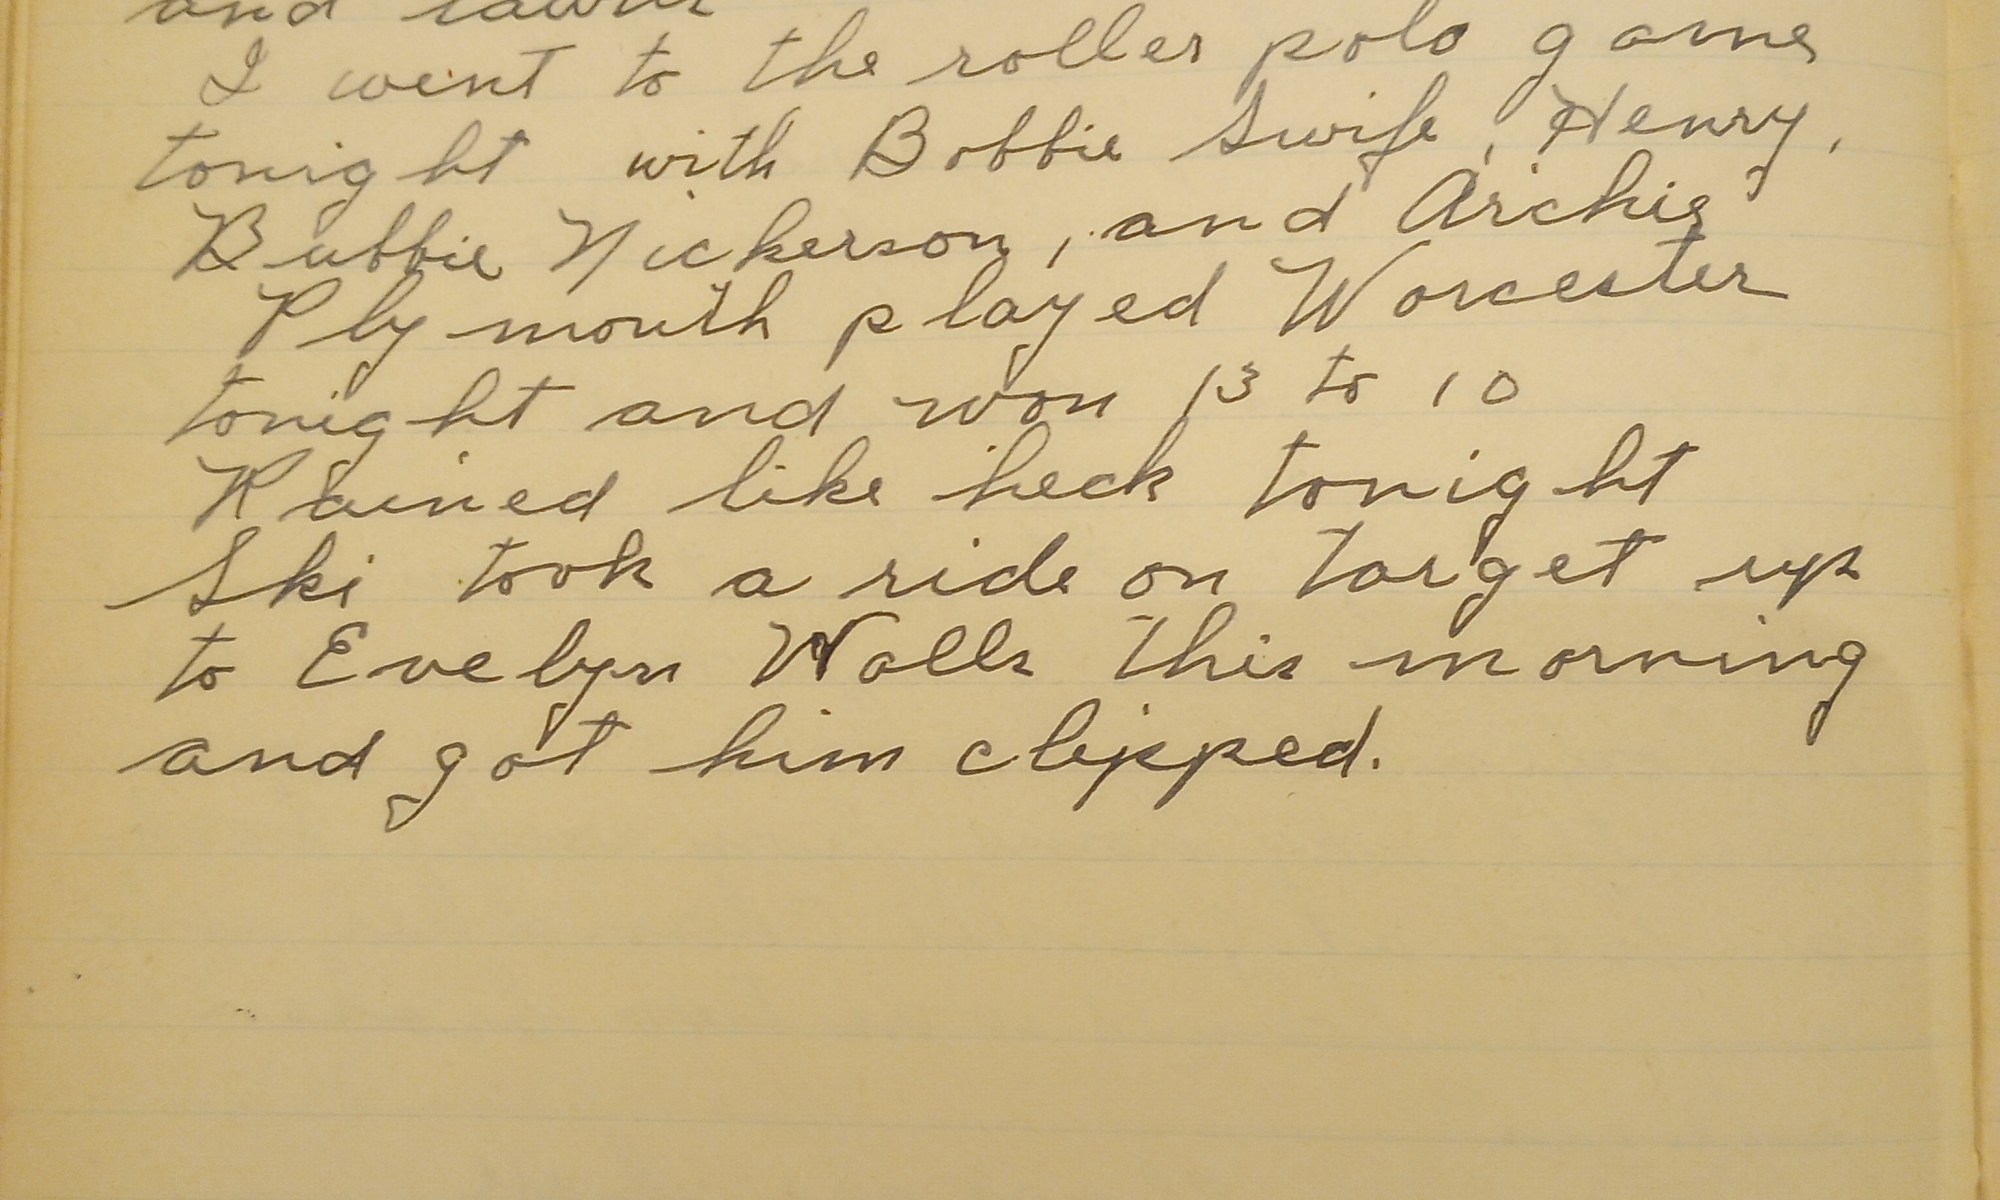 and lawn
I went to the roller polo game
tonight with Bobbie Swife, Henry,
Bubbie Nickerson, and Archie
Plymouth played Worcester
tonight and won 13 to 10
Rained like heck tonight
Ski took a ride on Target up
to Evelyn Walls this morning
and got him clipped.